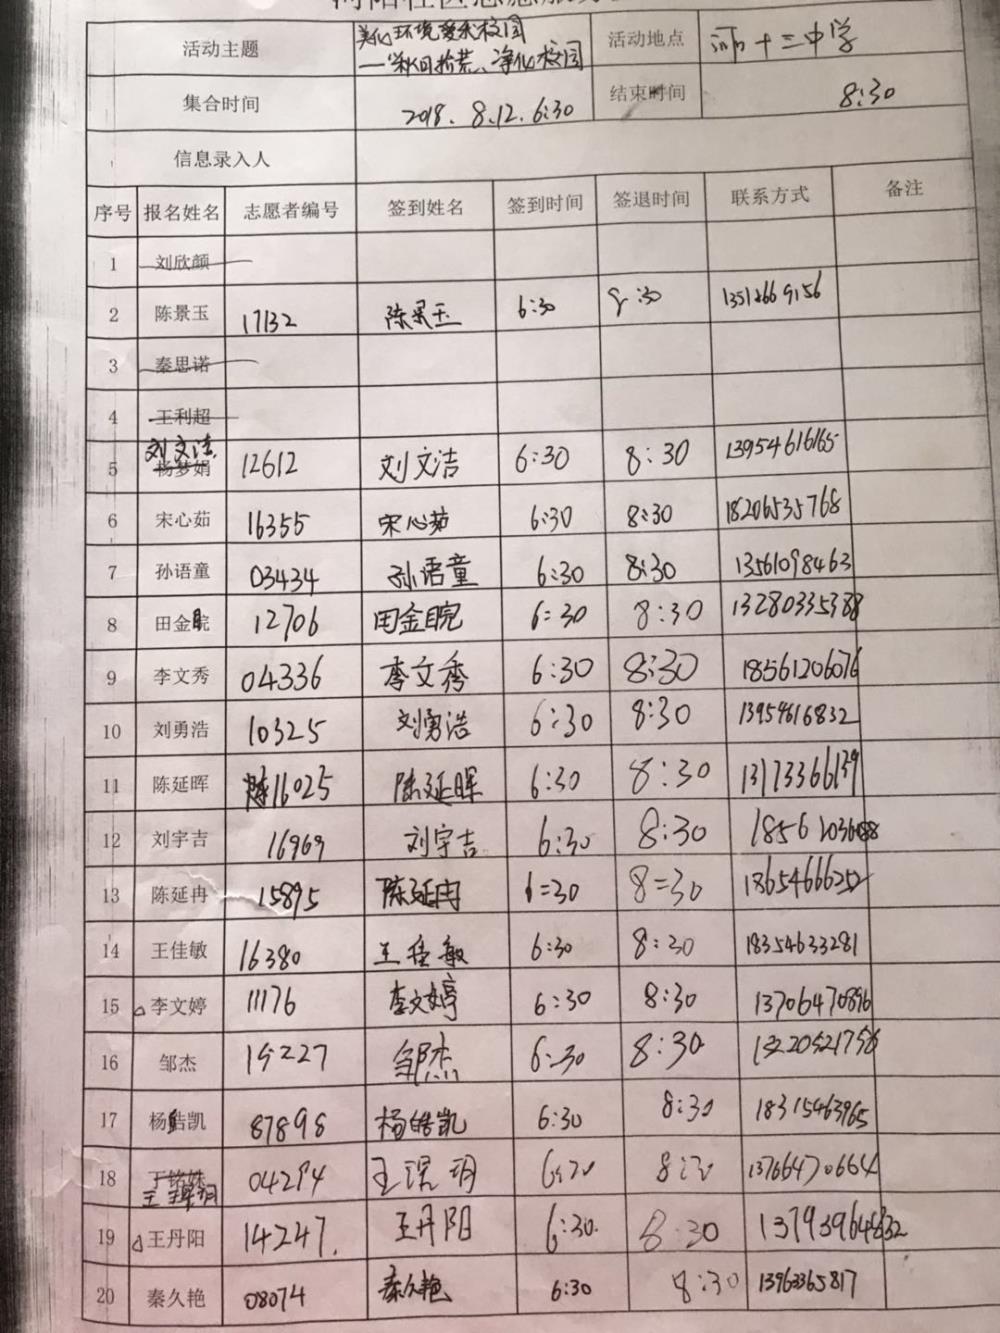 活动主题 美化环境爱我校园 活动地点 河十三中学
一"秋日拾荒、净化校园
集合时间 2018.8.12.6:30 结束时间 8:30
信息录入人
序号 报名姓名 志愿者编号 签到姓名 签到时间 签退时间 联系方式 备注
1 刘欣颜
2 陈景玉 17132 陈景玉 6:30 8:30 13512669156
3 秦思诺
4 王利超
刘文洁
5 杨梦娟 12612 刘文洁 6:30 8:30 13954616165
6 宋心茹 16355 宋心茹 6:30 8:30 18206535768
7 孙语童 03434 孙语童 6:30 8:30 13561098463
8 田金晥 12706 田金晥 6:30 8:30 13280335388
9 李文秀 04336 李文秀 6:30 8:30 18561206076
10 刘勇浩 10325 刘勇浩 6:30 8:30 13954616832
11 陈延晖 16025 陈延晖 6:30 8:30 13173366139
12 刘宇吉 16969 刘宇吉 6:30 8:30
13 陈延冉 15895 陈延冉 6=30 8=30 18654666252
14 王佳敏 16380 王佳敏 6:30 8:30 18354633281
15 李文婷 11176 李文婷 6:30 8:30 13706470896
16 邹杰 15227 邹杰 6:30 8:30
17 杨皓凯 87898 杨皓凯 6:30 8:30 18315463965
18 丁铭姝 04294 王淏玥 6:30 8:30 13766470664
19 王丹阳 14247. 王丹阳 6:30. 8:30
20 秦久艳 08074 秦久艳 6:30 8:30 13963365817